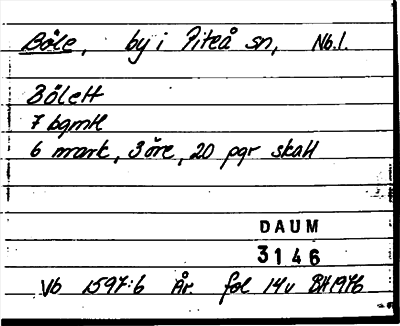 Böle, by i Piteå sn, Nb.l.
Bölett
7 bgmtl
6 mark, 3 öre, 20 pgr skatt
DAUM
3146
Vb 1597:6 År fol 14v BH 1976